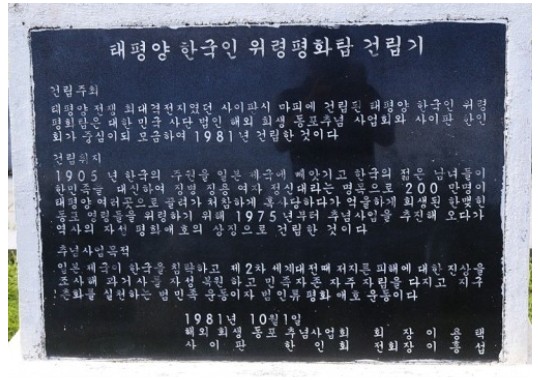 태평양 한국인 위령평화탑 건립기
건립주회
태평양 전쟁 최대격전지였던 사이판시 마피에 건립된 태평양 한국인 위령
평화탑은 대한민국 사단 법인 해외 희생 동포추념 사업회와 사이판 한인
회가 중심이되 모금하여 1981년 건립한 것이다
건립취지
1905년 한국의 주권을 일본 제국에 빼앗기고 한국의 젊은 남녀들이
한민족을 대신하여 징병 징용 여자 정신대라는 명목으로 200 만명이
태평양 여러곳으로 끌려가 처참하게 혹사당하다가 억울하게 희생된 한맺힌
동포 영령들을 위령하기 위해 1975년부터 추념사업을 추진해 오다가
역사의 자성 평화애호의 상징으로 건립한 것이다
추념사업목적
일본 제국이 한국을 침략하고 제2차 세계대전때 저지른 피해에 대한 진상을
조사해 과거사를 자성 복원하고 민족자존 자주 자립을 다지고 지구
촌화를 실천하는 범민족 운동이자 범인류 평화 애호 운동이다
1981년 10월1일
해외 희생 동포 추념사업회 회 장 이 용 택
사 이 판 한 인 회 전회장 이 홍 섭